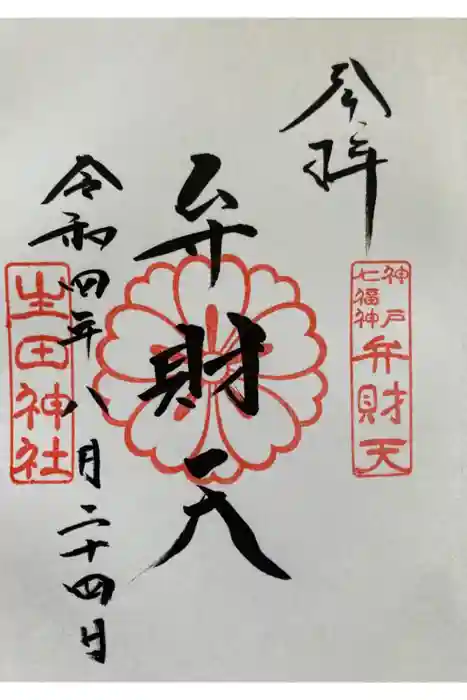 参拝
神戸
七福神
弁財天
弁財天
令和四年八月二十四日
生田神社